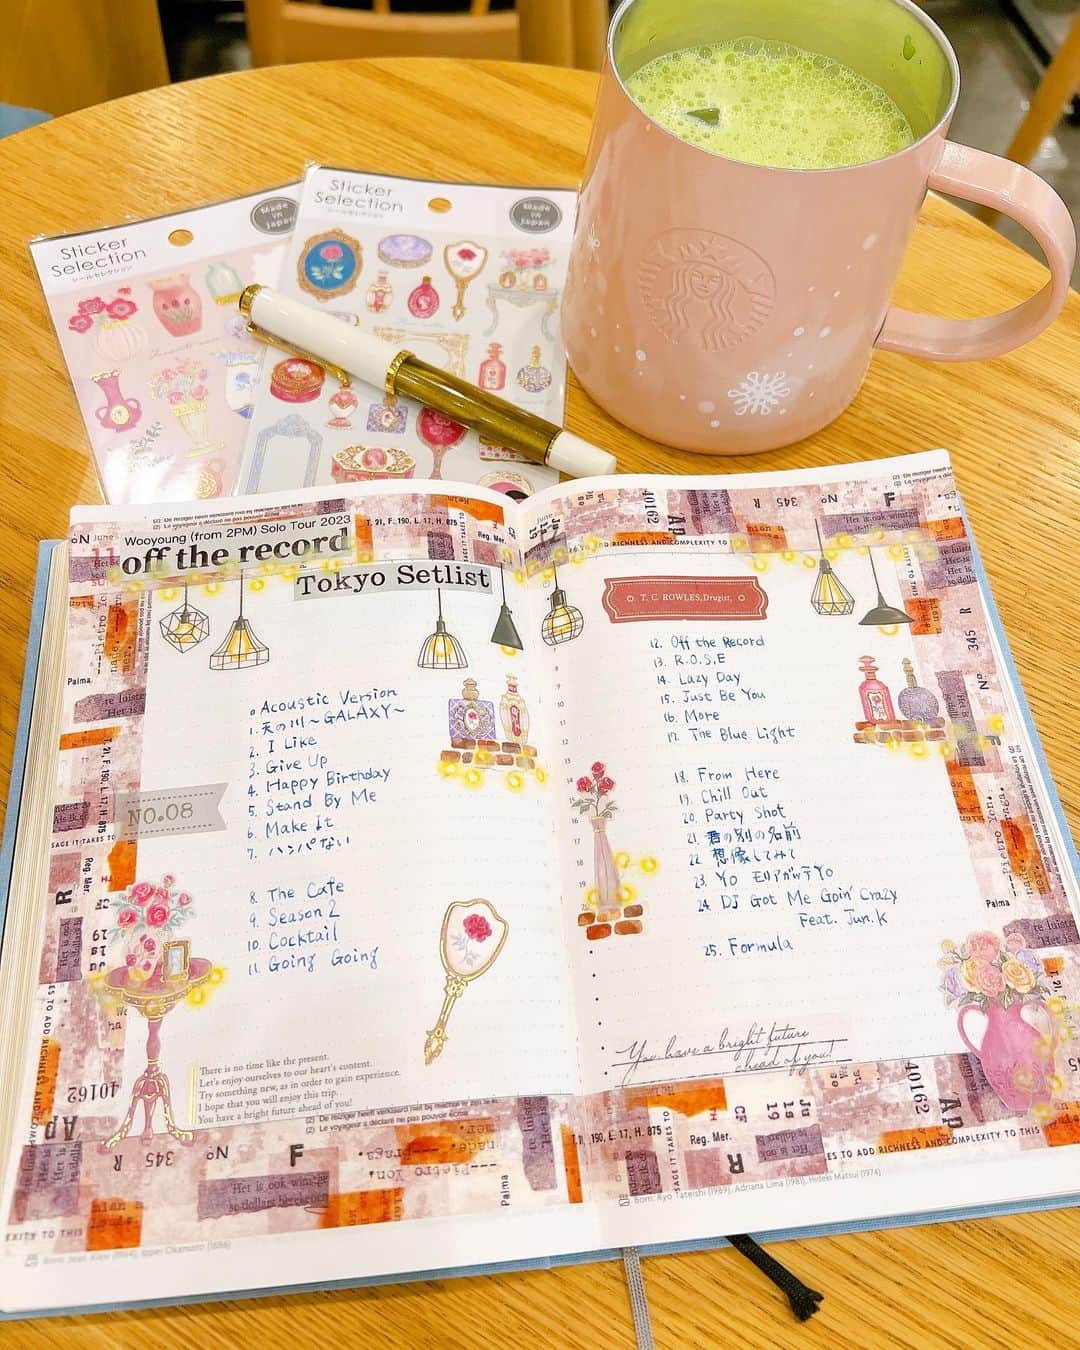 Sticker
Selection
シールセレクション
Made
in
japan
Sticker
Selection
シールセレクション
Made
in
japan
Wooyoung (from 2PM) Solo Tour 2023
off the record
Tokyo Setlist
0. Acoustic Version
1. 天の川〜GALAXY〜
2. I Like
3. Give Up
4. Happy Birthday
5. Stand By Me
6. Make It
7. ハンパない
NO.08
8. The Cafe
9. Season 2
10. Cocktail
11. Going Going
There is no time like the present.
Let's enjoy ourselves to our heart's content.
Try something new, as in order to gain experience.
I hope that you will enjoy this trip.
You have a bright future ahead of you!
T. C. ROWLES, Drugist,
12. Off the Record
13. R.O.S.E
14. Lazy Day
15. Just Be You
16. More
17. The Blue Light
18. From Here
19. Chill Out
20. Party Shot
21. 君の別の名前
22. 想像してみて
23. Yo モリアガッテ Yo
24. DJ Got Me Goin' Crazy
Feat. Jun.K
25. Formula
You have a bright future
ahead of you!
T. 21, F. 190, L. 17, H. 875
Reg. Mer.
Palma
40162
Ap
R
345
Nº
F
Pietro Yon.
Born: Ryo Tateishi (1989), Adriana Lima (1981), Hideki Matsui (1974)